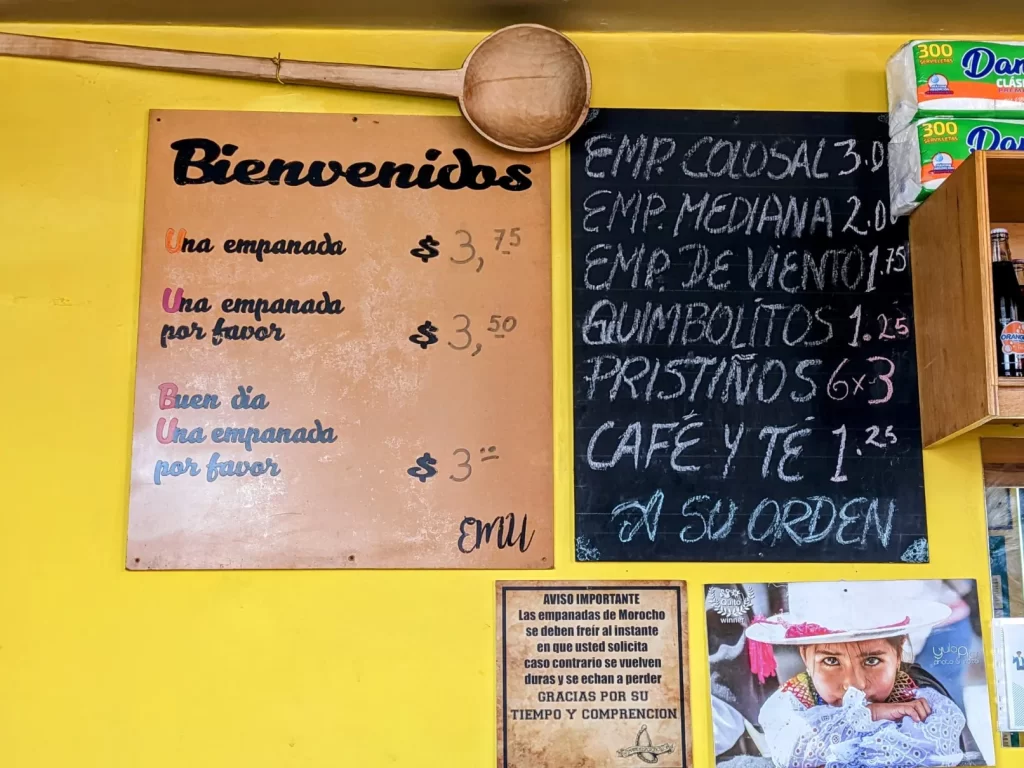 Bienvenidos
Una empanada $ 3,75
Una empanada
por favor $ 3,50
Buen dia
Una empanada
por favor $ 3
EMU
EMP. COLOSAL 3.0
EMP. MEDIANA 2.0
EMP. DE VIENTO 1.75
QUIMBOLITOS 1.25
PRISTIÑOS 6x3
CAFÉ Y TÉ 1.25
A SU ORDEN
300
CLÁS
300
AVISO IMPORTANTE
Las empanadas de Morocho
se deben freír al instante
en que usted solicita
caso contrario se vuelven
duras y se echan a perder
GRACIAS POR SU
TIEMPO Y COMPRENCION
Quito
winner